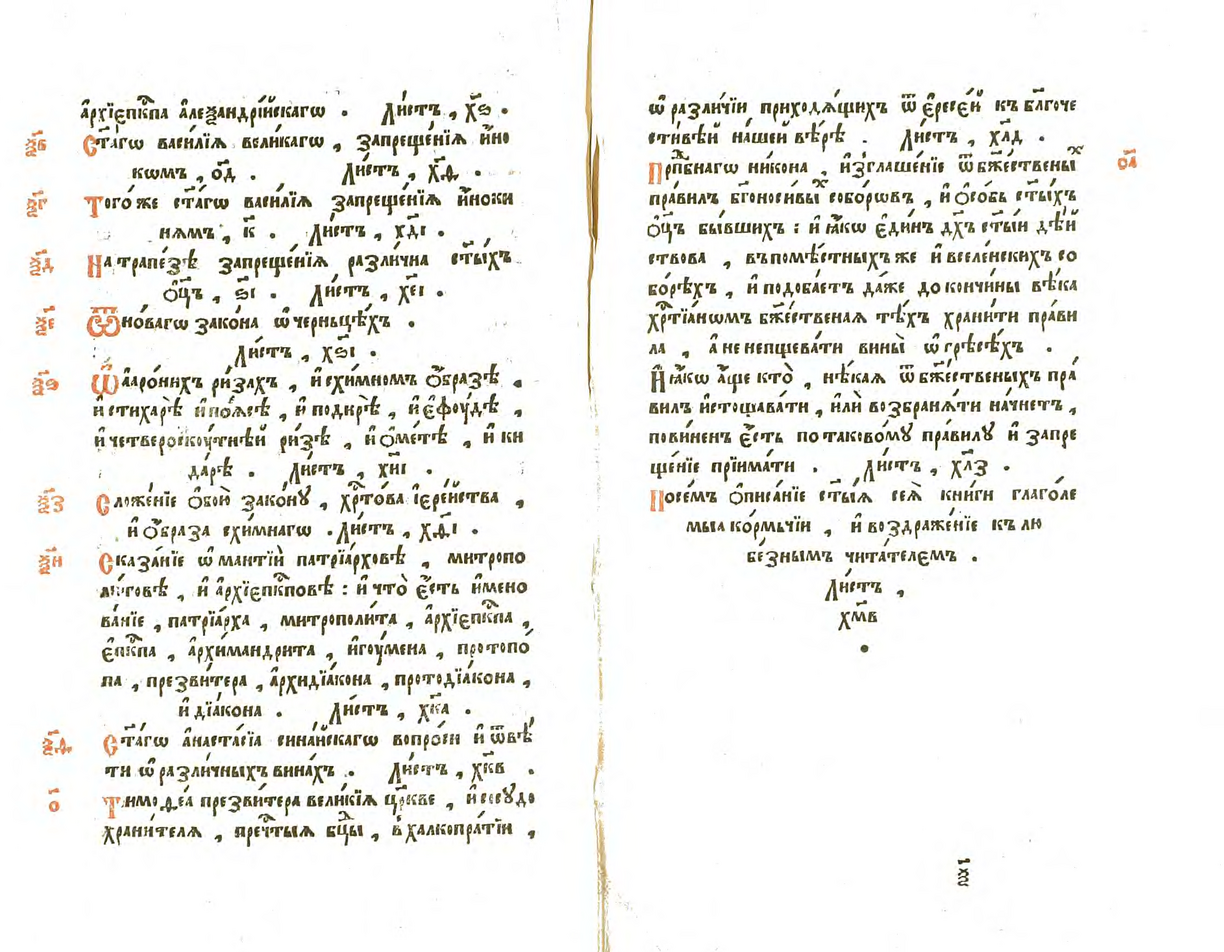 а҆рхїепⷭ҇кпа а҆леѯандрі́йскагѡ . Ли́стъ , х҃ѕ .
ѯ҃в Ст҃а́гѡ васи́лїѧ вели́кагѡ , запреще́нїѧ и҆но
кѡмъ , ѻ҃д . Ли́стъ , х҃ѳ .
ѯ҃г Того́ же ст҃а́гѡ васи́лїѧ запреще́нїѧ и҆ноки
нѧмъ , к҃ . Ли́стъ , хд҃ї .
ѯ҃д На трапе́зѣ запреще́нїѧ разли́чна ст҃ы́хъ
ѻ҆ц҃ъ , ѕ҃ї . Ли́стъ , хе҃ї .
ѯ҃е Ѿ но́вагѡ зако́на ѡ҆ черньцѣ́хъ .
Ли́стъ , хѕ҃ї .
ѯ҃ѕ Ѡ҆ а҆аро́нихъ ри́зах , и҆ схи́мномъ ѻ҆́бразѣ .
и҆ стиха́рѣ и҆ по́ѧсѣ , и҆ поди́рѣ , и҆ є҆фꙋ́дѣ ,
и҆ четвероскꙋ́тнѣй ри́зѣ , и҆ ѻ҆ме́тѣ , и҆ ки
да́рѣ . Ли́стъ , хи҃ї .
ѯ҃з Сложе́нїе ѻ҆бою̀ зако́нꙋ , хрⷭ҇то́ва і҆ере́йства ,
и҆ ѻ҆́браза схи́мнагѡ . Ли́стъ , хѳ҃ї .
ѯ҃и Сказа́нїе ѡ҆ манті́и патрїа́рховѣ , митропо
ли́товѣ , и҆ а҆рхїепⷭ҇кповѣ : и҆ что̀ є҆́сть и҆мено
ва́нїе , патрїа́рха , митрополи́та , а҆рхїепⷭ҇кпа ,
є҆пⷭ҇кпа , а҆рхимандри́та , и҆гꙋ́мена , протопо́
па , презви́тера , а҆рхидїа́кона , протодїа́кона ,
и҆ дїа́кона . Ли́стъ , хк҃а .
ѯ҃ѳ Ст҃а́гѡ а҆наста́сїа сина́йскагѡ вопро́си и҆ ѿвѣ́
ти ѡ҆ разли́чныхъ вина́хъ . Ли́стъ , хк҃в .
ѻ҃ Тимоѳе́а презви́тера вели́кїѧ цр҃кве , и҆ сосꙋдо
храни́телѧ , пречⷭ҇тыѧ бц҃ы , в̾ халкопра́тїи ,
ѡ҆ разли́чїи приходѧ́щихъ ѿ є҆ресе́й къ бл҃гоче
сти́вѣй на́шей вѣ́рѣ . Ли́стъ , хл҃д .
ѻ҃а Прпⷣбнагѡ ни́кона , и҆зглаше́нїе ѿ бж҃е́ственыⷯ
пра́вилъ бг҃оноси́выⷯ собо́рѡвъ , и҆ ѻ҆со́бь ст҃ы́хъ
ѻ҆ц҃ъ бы́вшихъ : и҆ ꙗ҆́кѡ є҆ди́нъ дх҃ъ ст҃ы́й дѣ́й
ствова , въ помѣ́стныхъ же и҆ вселе́нскихъ со
бо́рѣхъ , и҆ подоба́етъ да́же до кончи́ны вѣ́ка
хрⷭ҇тїа́нѡмъ бж҃е́ственаѧ тѣ́хъ храни́ти пра́ви
ла , а҆ не непщева́ти вины̀ ѡ҆ грѣсѣ́хъ .
И҆ ꙗ҆́кѡ а҆́ще кто̀ , нѣ́каѧ ѿ бж҃е́ственыхъ пра́
вилъ и҆стощава́ти , и҆лѝ возбранѧ́ти на́чнетъ ,
пови́ненъ є҆́сть по таково́мꙋ пра́вилꙋ и҆ запре
ще́нїе прїима́ти . Ли́стъ , хл҃з .
По се́мъ ѻ҆писа́нїе ст҃ы́ѧ сеѧ̀ кни́ги глаго́ле
мыа ко́рмьчїи , и҆ воздраже́нїе къ лю
бе́знымъ чита́телємъ .
Ли́стъ ,
хм҃в
.
ѯ҃